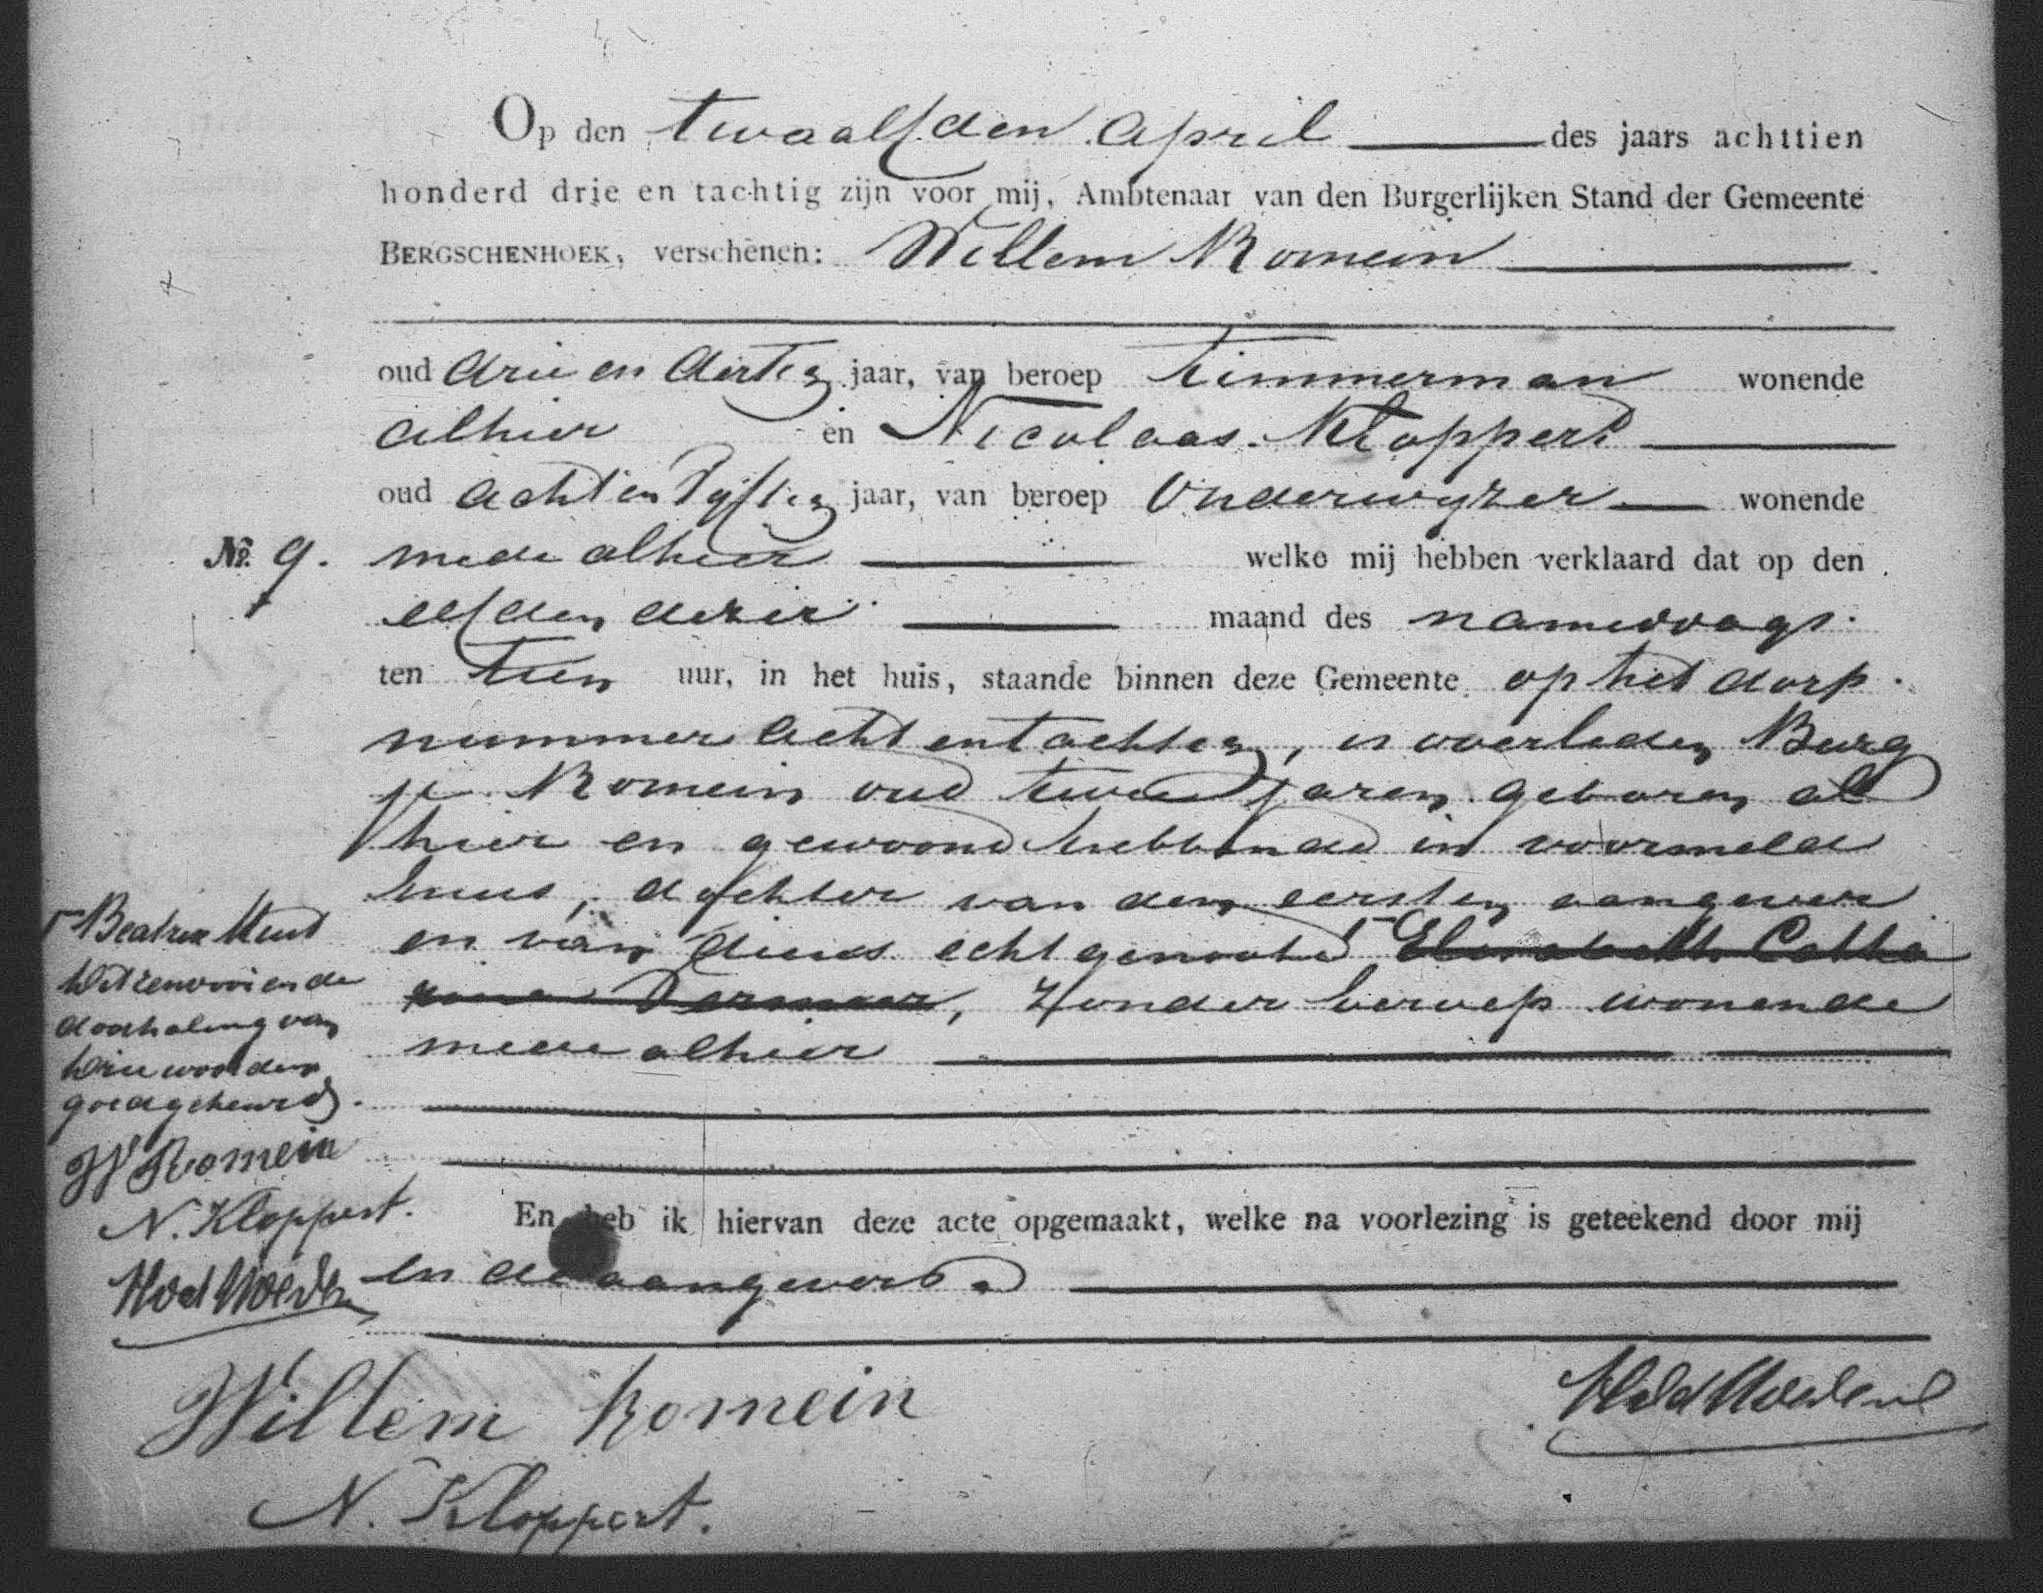 Op den twaalfden April des jaars achttien
honderd drie en tachtig zijn voor mij, Ambtenaar van den Burgerlijken Stand der Gemeente
BERGSCHENHOEK, verschenen: Willem Romein
oud drie en dertig jaar, van beroep timmerman wonende
alhier en Nicolaas Kloppert
oud acht en vyftig jaar, van beroep Onderwyzer wonende
No. 9. mede alhier welke mij hebben verklaard dat op den
elfden dezer maand des namiddags
ten tien uur, in het huis, staande binnen deze Gemeente op het dorp
nummer acht en tachtig, is overleden Burg
je Romein oud twee jaren geboren al
hier en gewoond hebbende in voormeld
huis, dochter van den eersten aangever
en van diens echtgenoote Elisabeth Catha
rina, zonder beroep wonende
mede alhier
Beatrix
het renvooi en de
doorhaling van
drie woorden
goedgekeurd.
W Romein
N. Kloppert.
En heb ik hiervan deze acte opgemaakt, welke na voorlezing is geteekend door mij
en de aangevers
Willem Romein
N. Kloppert.